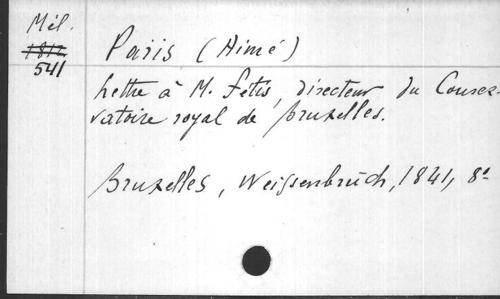 Mél.
1812
541
Paris (Aimé)
Lettre à M. Fétis, directeur du Conser-
vatoire royal de Bruxelles.
Bruxelles, Weissenbruch, 1841, 8°